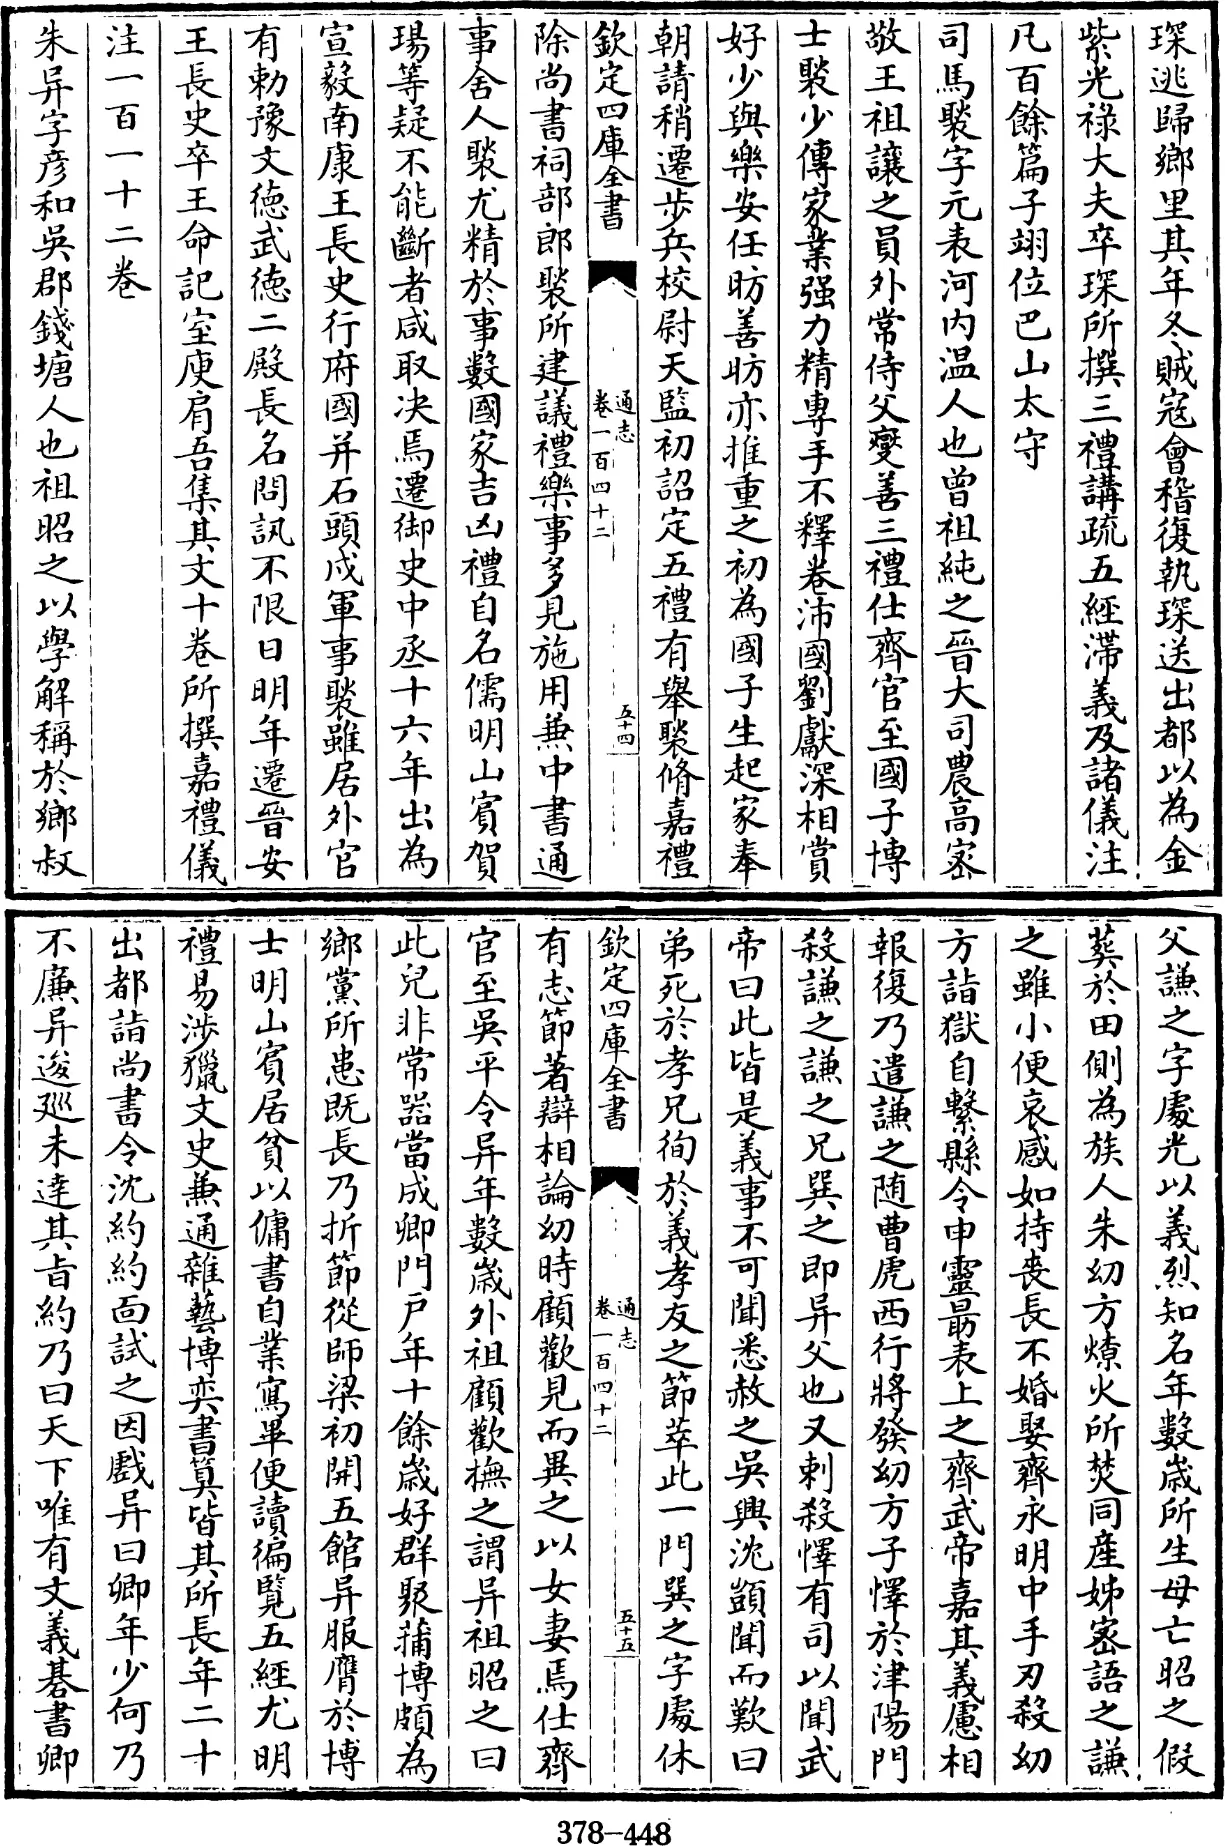 琛逃歸鄉里其年冬賊寇會稽復執琛送出都以為金
紫光祿大夫卒琛所撰三禮講疏五經滯義及諸儀注
凡百餘篇子翊位巴山太守
司馬褧字元表河内温人也曾祖純之晉大司農高宻
敬王祖讓之員外常侍父燮善三禮仕齊官至國子博
士褧少傳家業强力精專手不釋卷沛國劉獻深相賞
好少與樂安任昉善昉亦推重之初為國子生起家奉
朝請稍遷步兵校尉天監初詔定五禮有舉褧脩嘉禮
欽定四庫全書
通志
卷一百四十二
五十四
除尚書祠部郎褧所建議禮樂事多見施用兼中書通
事舍人褧尤精於事數國家吉凶禮自名儒明山賓賀
瑒等疑不能斷者咸取决焉遷御史中丞十六年出為
宣毅南康王長史行府國并石頭戍軍事褧雖居外官
有勅豫文徳武徳二殿長名問訊不限日明年遷晉安
王長史卒王命記室庾肩吾集其文十卷所撰嘉禮儀
注一百一十二卷
朱异字彦和吳郡錢塘人也祖昭之以學解稱於鄉叔
父謙之字處光以義烈知名年數歲所生母亡昭之假
葬於田側為族人朱幼方燎火所焚同産姊宻語之謙
之雖小便哀感如持喪長不婚娶齊永明中手刃殺幼
方詣獄自繫縣令申靈朂表上之齊武帝嘉其義慮相
報復乃遣謙之随曹虎西行將發幼方子懌於津陽門
殺謙之謙之兄巽之即异父也又刺殺懌有司以聞武
帝曰此皆是義事不可聞悉赦之吳興沈顗聞而歎曰
弟死於孝兄徇於義孝友之節萃此一門巽之字處休
欽定四庫全書
通志
卷一百四十二
五十五
有志節著辯相論幼時顧歡見而異之以女妻焉仕齊
官至吳平令异年數歲外祖顧歡撫之謂异祖昭之曰
此兒非常器當成卿門户年十餘歲好群聚蒲博頗為
鄉黨所患既長乃折節從師梁初開五館异服膺於博
士明山賓居貧以傭書自業寫畢便讀徧覽五經尤明
禮易涉獵文史兼通雜藝博奕書算皆其所長年二十
出都詣尚書令沈約約面試之因戯异曰卿年少何乃
不廉异逡廵未達其旨約乃曰天下唯有文義棊書卿
378-448